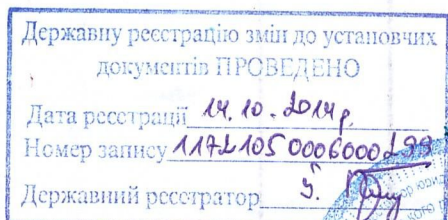 Державну реєстрацію змін до установчих
документів ПРОВЕДЕНО
Дата реєстрації 14.10.2014р.
Номер запису 11721050006000299
Державний реєстратор